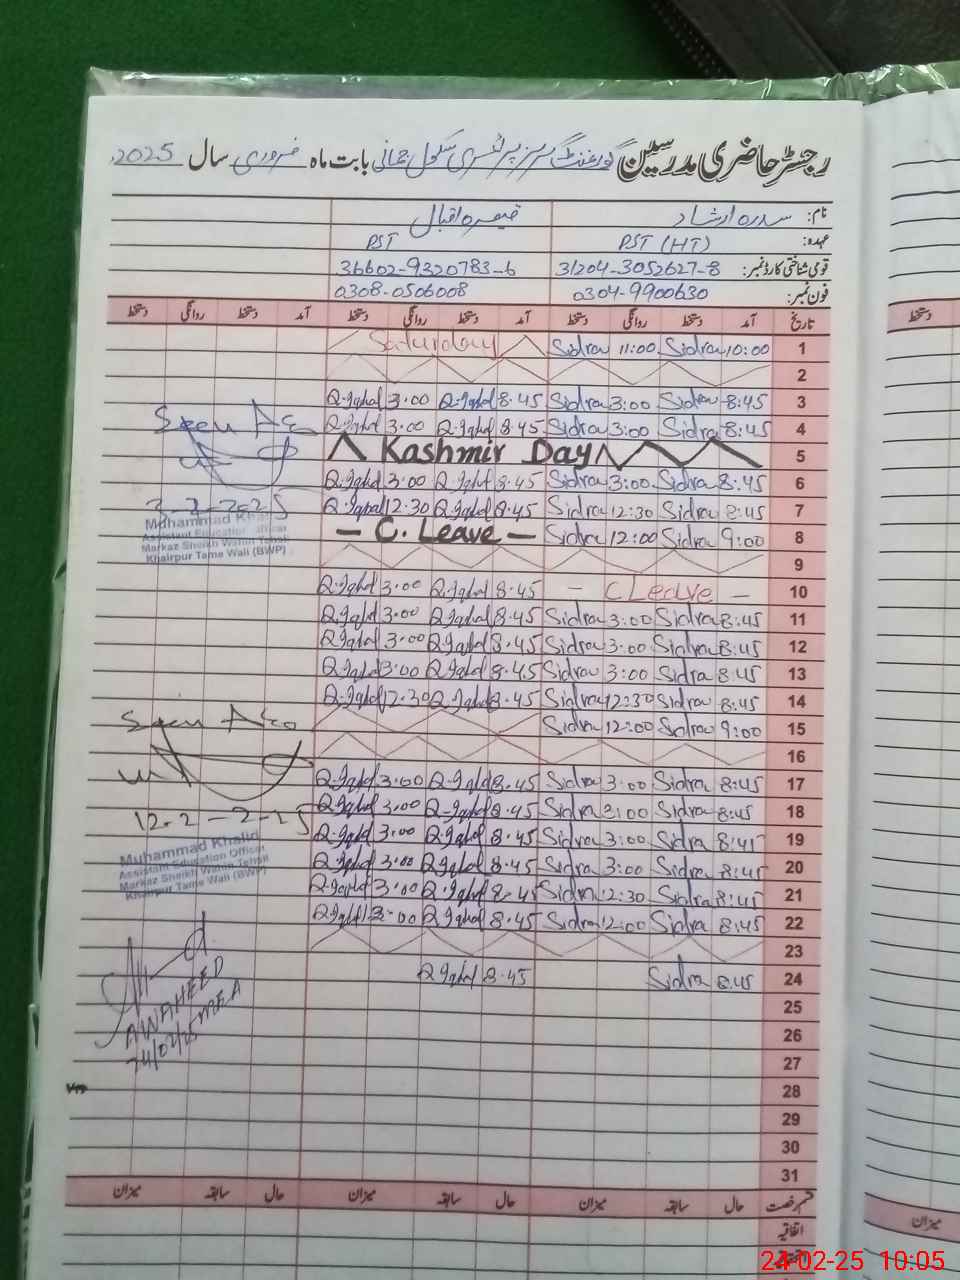 رجسٹر حاضری مدرسین گورنمنٹ گرلز پرائمری سکول جمانی بابت ماہ فروری سال 2025
نام: سدرہ ارشاد قیصرہ اقبال
عہدہ: PST (HT) PST
قومی شناختی کارڈ نمبر: 31204-3052627-8 36602-9320783-6
فون نمبر: 0304-9900630 0308-0506008
تاریخ آمد دستخط روانگی دستخط آمد دستخط روانگی دستخط آمد دستخط روانگی دستخط
1 10:00 Sidra 11:00 Sidra Saturday
2
3 8:45 Sidra 3:00 Sidra 8.45 Q.Iqbal 3.00 Q.Iqbal
4 8:45 Sidra 3:00 Sidra 8.45 Q.Iqbal 3.00 Q.Iqbal
5 Kashmir Day
6 8:45 Sidra 3:00 Sidra 8.45 Q.Iqbal 3.00 Q.Iqbal
7 8:45 Sidra 12:30 Sidra 8.45 Q.Iqbal 12.30 Q.Iqbal
8 9:00 Sidra 12:00 Sidra — C. Leave —
9
10 — C Leave — 8.45 Q.Iqbal 3.00 Q.Iqbal
11 8:45 Sidra 3:00 Sidra 8.45 Q.Iqbal 3.00 Q.Iqbal
12 8:45 Sidra 3:00 Sidra 8.45 Q.Iqbal 3.00 Q.Iqbal
13 8:45 Sidra 3:00 Sidra 8.45 Q.Iqbal 3.00 Q.Iqbal
14 8:45 Sidra 12:30 Sidra 8.45 Q.Iqbal 12.30 Q.Iqbal
15 9:00 Sidra 12:00 Sidra
16
17 8:45 Sidra 3:00 Sidra 8.45 Q.Iqbal 3.00 Q.Iqbal
18 8:45 Sidra 3:00 Sidra 8.45 Q.Iqbal 3.00 Q.Iqbal
19 8:45 Sidra 3:00 Sidra 8.45 Q.Iqbal 3.00 Q.Iqbal
20 8:45 Sidra 3:00 Sidra 8.45 Q.Iqbal 3.00 Q.Iqbal
21 8:45 Sidra 12:30 Sidra 8.45 Q.Iqbal 3.00 Q.Iqbal
22 8:45 Sidra 12:00 Sidra 8.45 Q.Iqbal 3.00 Q.Iqbal
23
24 8:45 Sidra 8.45 Q.Iqbal
25
26
27
28
29
30
31
Seen AEO
Muhammad Khalid
Assistant Education Officer
Markaz Sheikh Wahin Tehsil
Khairpur Tame Wali (BWP)
Seen AEO
12-2-25
Muhammad Khalid
Assistant Education Officer
Markaz Sheikh Wahin Tehsil
Khairpur Tame Wali (BWP)
A WAHEED
MEA
24/02/25
قسم رخصت حال سابقہ میزان حال سابقہ میزان حال سابقہ میزان
اتفاقیہ
دستخط
میزان
24-02-25 10:05